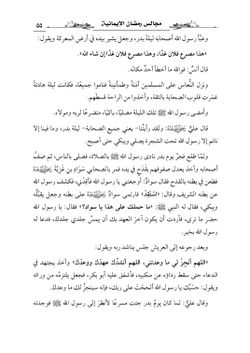 مجالس رمضان الإيمانية
٥٥
وعبَّأ رسول الله أصحابه ليلة بدر، وجعل يشير بيده في أرض المعركة ويقول:
«هذا مصرع فلان غدًا، وهذا مصرع فلان غدًا إن شاء الله».
قال أنسٌ: فوالله ما أخطأ أحدٌ مكانه.
ونزل النُّعاس على المسلمين أمَنةً وطمأنينةً فناموا جميعًا، فكانت ليلةً هادئةً
غمَرت قلوب الصحابة بالثقة، وأخذوا من الراحة قسطهم.
وأمضى رسول الله ﷺ تلك الليلة مصليًا، باكيًا، متضرعًا لربه ومولاه.
قال عليٌّ: ولقد رأيتُنا - يعني جميع الصحابة - ليلة بدر، وما فينا إلا
نائم إلا رسول الله تحت الشجرة يصلي ويبكي حتى أصبح.
ولمَّا طلع فجرُ يوم بدر نادى رسول الله ﷺ بالصلاة، فصلى بالناس، ثم صفَّ
أصحابه وأخذ يعدل صفوفهم بقِدْح في يده فمر بالصحابي سَوَّادِ بن غَزِيَّة
فطعن في بطنه بالقدح فقال سوادٌ: أوجعتني يا رسول الله فأقِدْني، فكشف رسول الله
عن بطنه الشريف وقال: فالتزمه سوادٌ بطنه وجعل يقبِّله
ويبكي، فقال له النبي ﷺ: «ما حملك على هذا يا سواد؟» فقال: يا رسول الله
حضر ما ترى، فأردت أن يكون آخرُ العهد بك أن يمسَّ جلدي جلدك، فدعا له
رسول الله بخير.
وبعد رجوعه إلى العريش جلس يناشد ربه ويقول:
«اللهم أنجِزْ لي ما وعدتني، اللهم أنشُدُك عهدَك ووعدَك» وأخذ يجتهد في
الدعاء حتى سقط رداؤه عن منكبيه، فأشفق عليه أبو بكر، فجعل يلتزمُه من ورائه
ويقول: حسْبُك يا رسول الله ألححْتَ على ربك، فإنه سينجزُ لك ما وعدك.
وقال عليٌّ: لما كان يومُ بدر جئت مسرعًا لأنظرَ إلى رسول الله ﷺ فوجدته